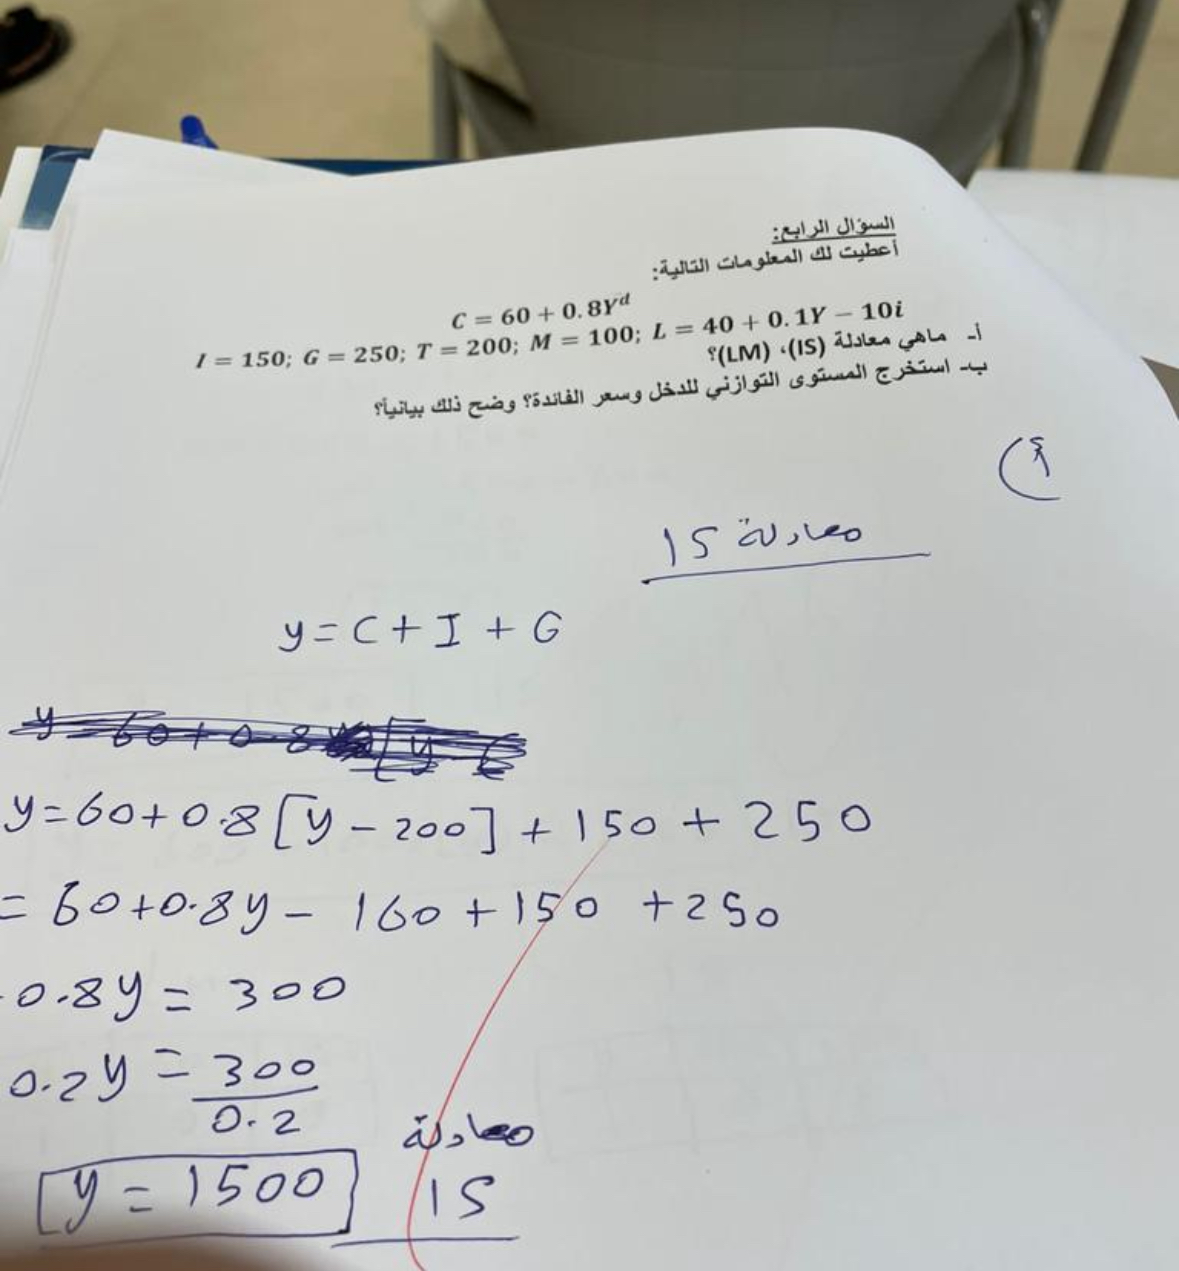 السؤال الرابع:
أعطيت لك المعلومات التالية:
C = 60 + 0.8Yᵈ
I = 150; G = 250; T = 200; M = 100; L = 40 + 0.1Y − 10i
أ- ماهي معادلة (IS)، (LM)؟
ب- استخرج المستوى التوازني للدخل وسعر الفائدة؟ وضح ذلك بيانياً؟
أ)
معادلة IS
y = C + I + G
y = 60 + 0.8 [y − 200] + 150 + 250
= 60 + 0.8y − 160 + 150 + 250
0.8y = 300
0.2y = 300
0.2
معادلة
y = 1500 IS